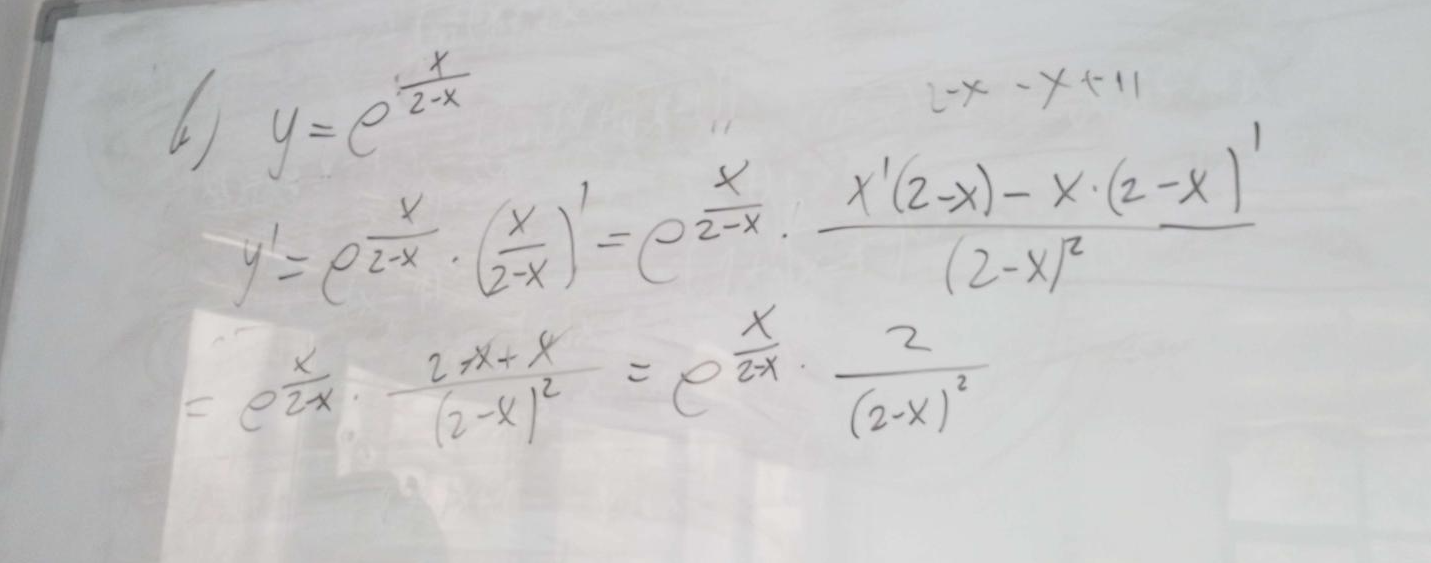 b) y = e^(x/(2-x))
2-x - x + 11
y' = e^(x/(2-x)) · (x/(2-x))' = e^(x/(2-x)) · (x'(2-x) - x·(2-x)')/((2-x)²)
= e^(x/(2-x)) · (2-x+x)/((2-x)²) = e^(x/(2-x)) · 2/((2-x)²)